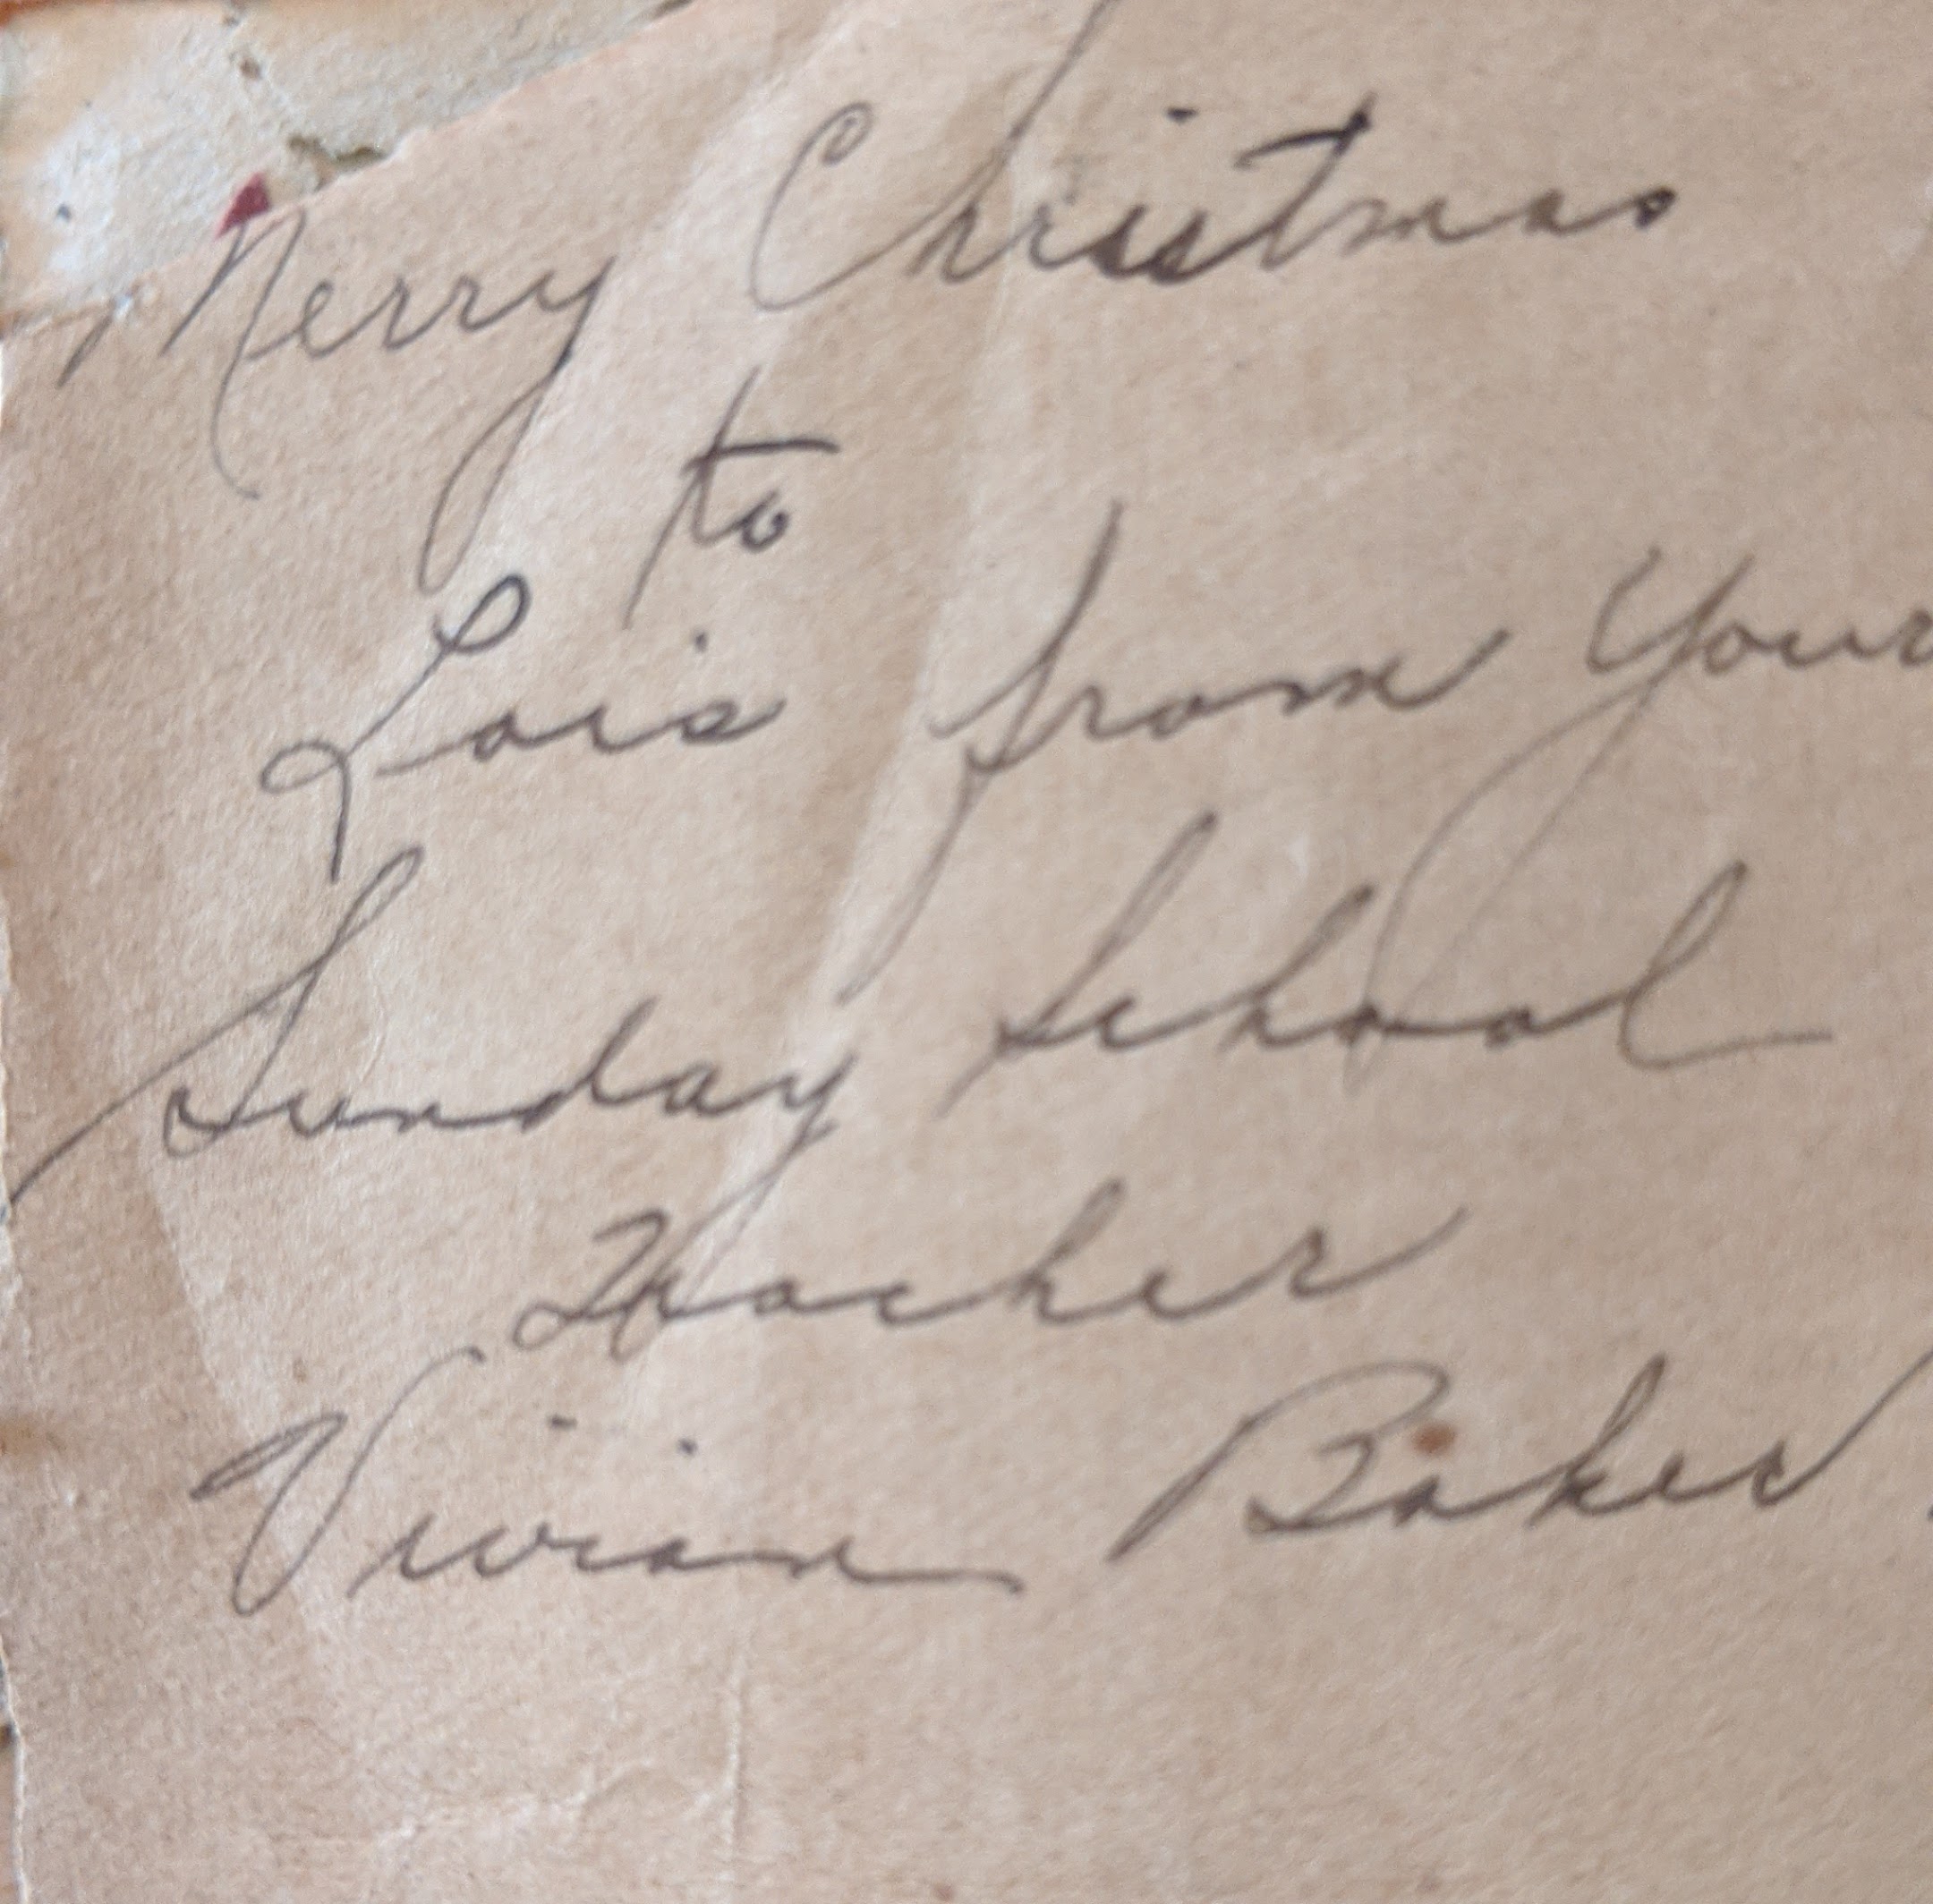 Merry Christmas
to
Lois from Your
Sunday School
Teacher
Vivian Baker.